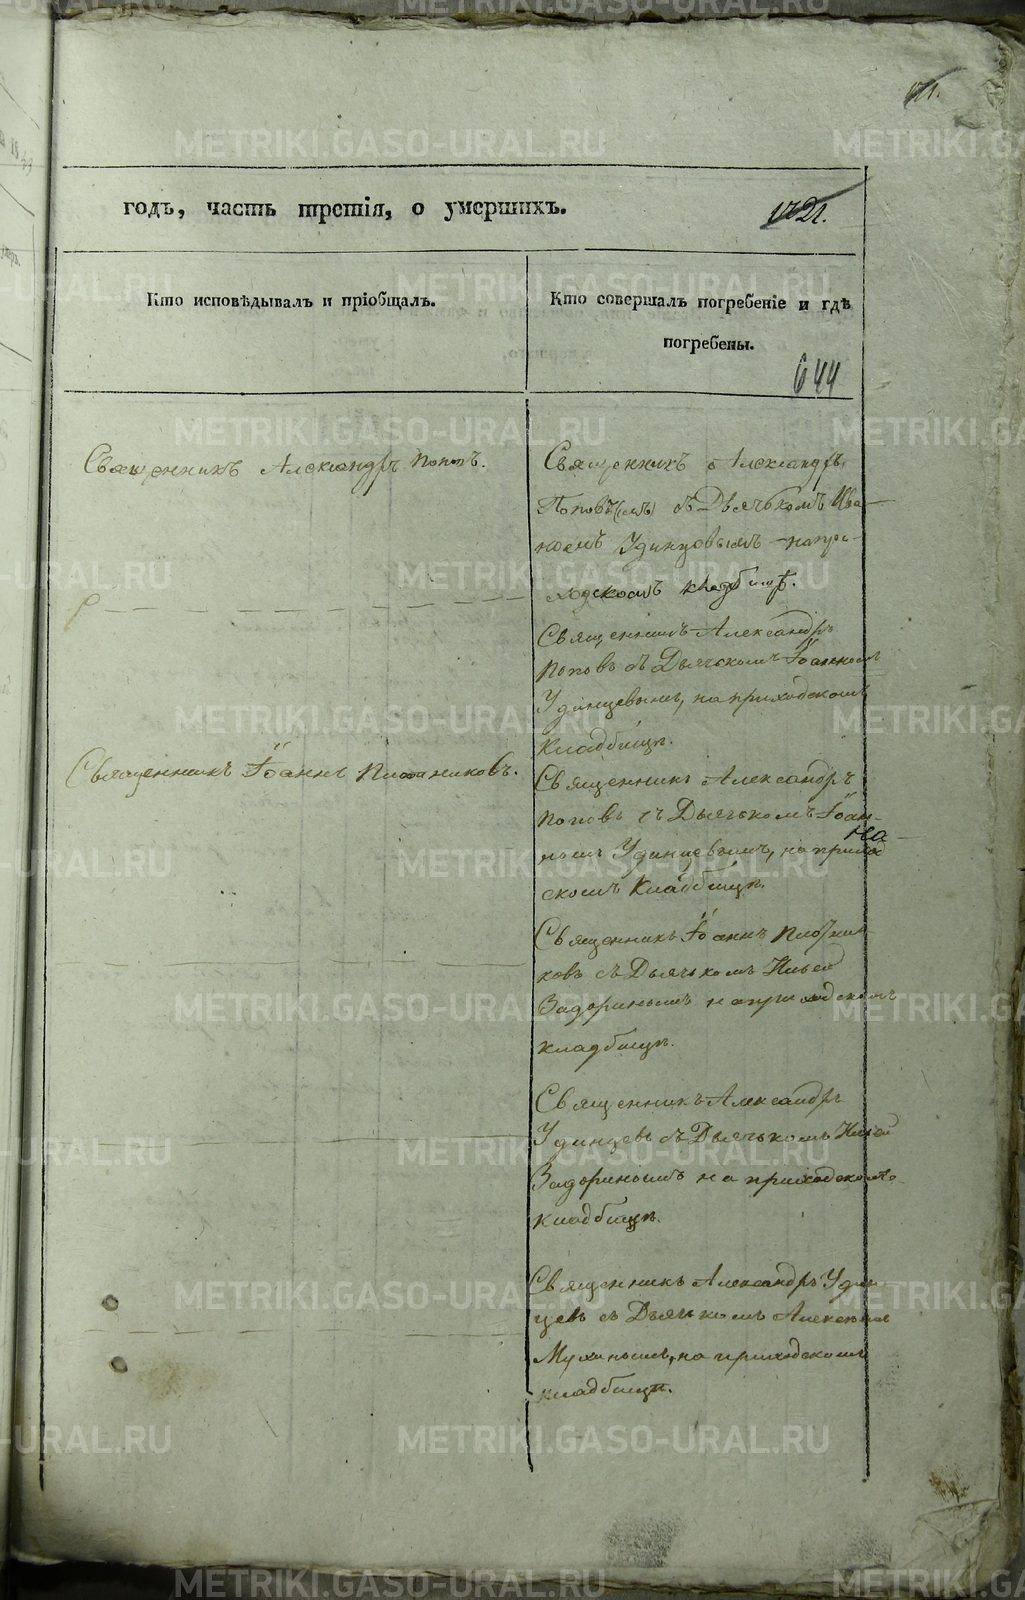 годъ, часть третія, о умершихъ.
Кто исповѣдывалъ и пріобщалъ.
Кто совершалъ погребеніе и гдѣ
погребены.
644
Священникъ Александръ Поповъ.
Священникъ Александръ
Поповъ съ Дьячкомъ Ива-
номъ Удинцовымъ на при-
ходскомъ кладбищѣ.
Священникъ Александръ
Поповъ съ Дьячкомъ Іоанномъ
Удинцевымъ, на приходскомъ
Кладбищѣ.
Священникъ Іоаннъ Плотниковъ.
Священникъ Александръ
Поповъ съ Дьячкомъ Іоан-
номъ Удинцевымъ, на приход
скомъ Кладбищѣ.
Священникъ Іоаннъ Плотни-
ковъ съ Дьячкомъ Ильей
Задоринымъ на приходскомъ
кладбищѣ.
Священникъ Александръ
Удинцевъ съ Дьячкомъ Ильей
Задоринымъ на приходскомъ
кладбищѣ.
Священникъ Александръ Удин-
цевъ съ Дьячкомъ Алексѣемъ
Мухинымъ, на приходскомъ
кладбищѣ.
METRIKI.GASO-URAL.RU